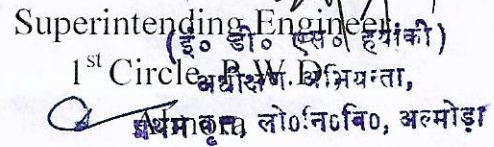 Superintending Engineer
(ई० डी० एस० ह्यांकी)
1st Circle, P.W.D.
अधीक्षण अभियन्ता,
Almora
प्रथम वृत्त, लो०नि०वि०, अल्मोड़ा